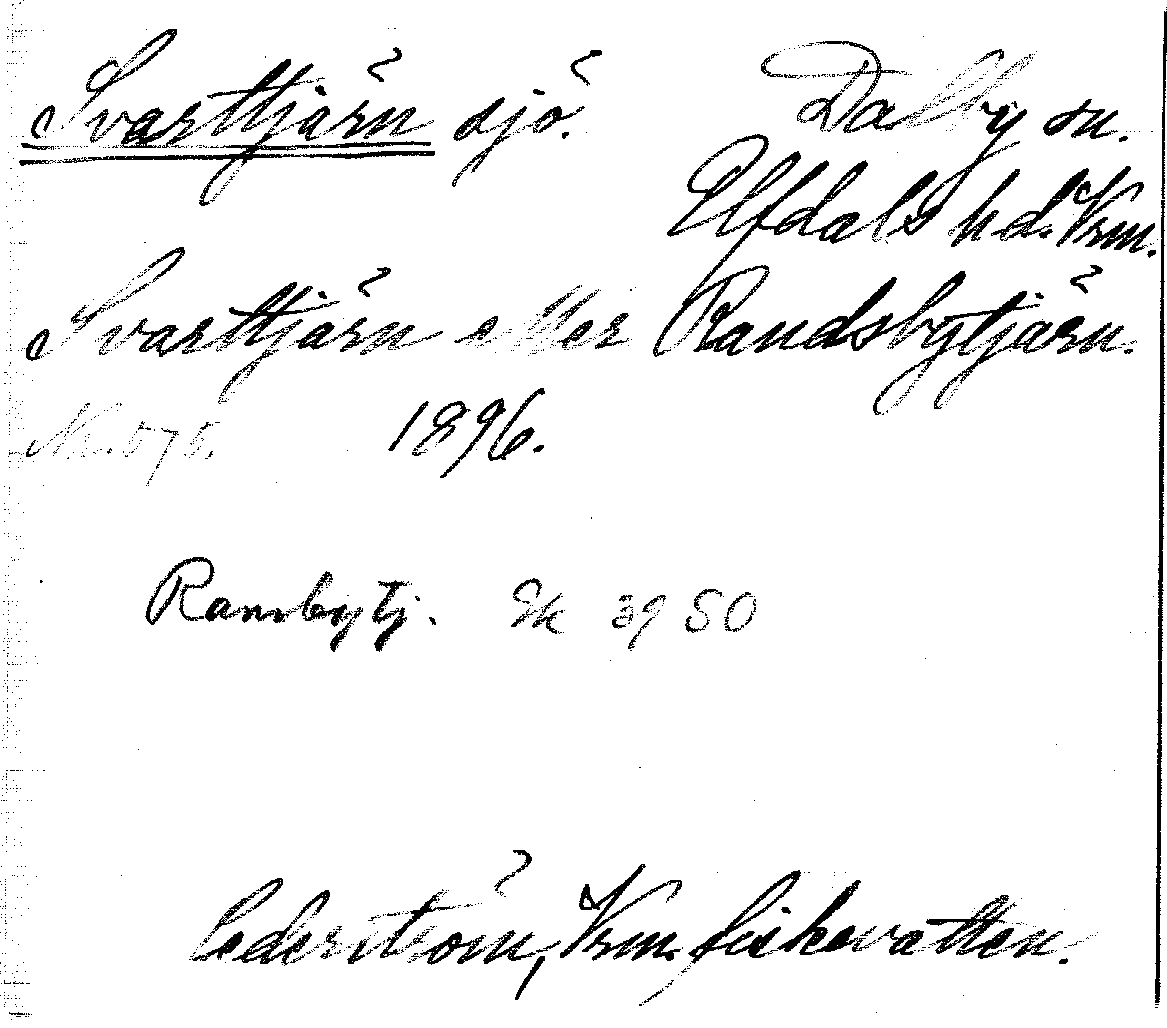 Svarttjärn sjö. Dalby sn.
Elfdals hd. Vrm.
Svarttjärn eller Randsbytjärn.
Nr. 575. 1896.
Ransbytj. Ek 39 50
Cederström, Vrm. fiskevatten.